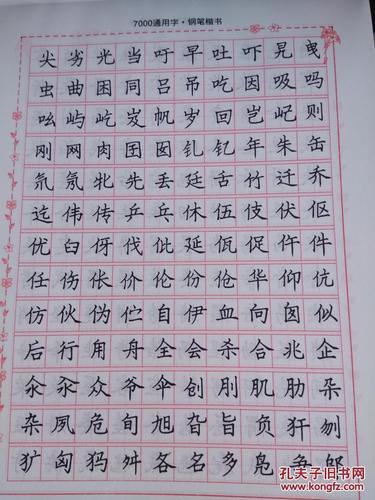 7000通用字·钢笔楷书
尖劣光当吁早吐吓旯曳
虫曲团同吕吊吃因吸吗
吆屿屹岌帆岁回岂屺则
刚网肉囝囡钆钇年朱缶
氘氖牝先丢廷舌竹迁乔
迄伟传乒乓休伍伎伏伛
优臼伢伐仳延佤仲仵件
任伤伥价伦份伧华仰伉
仿伙伪伫自伊血向囟似
后行甪舟全会杀合兆企
汆氽众爷伞创刖肌肋朵
杂夙危旬旭旮旨负犴刎
犷匈犸舛各名多凫争邬
孔夫子旧书网
kongfz.com